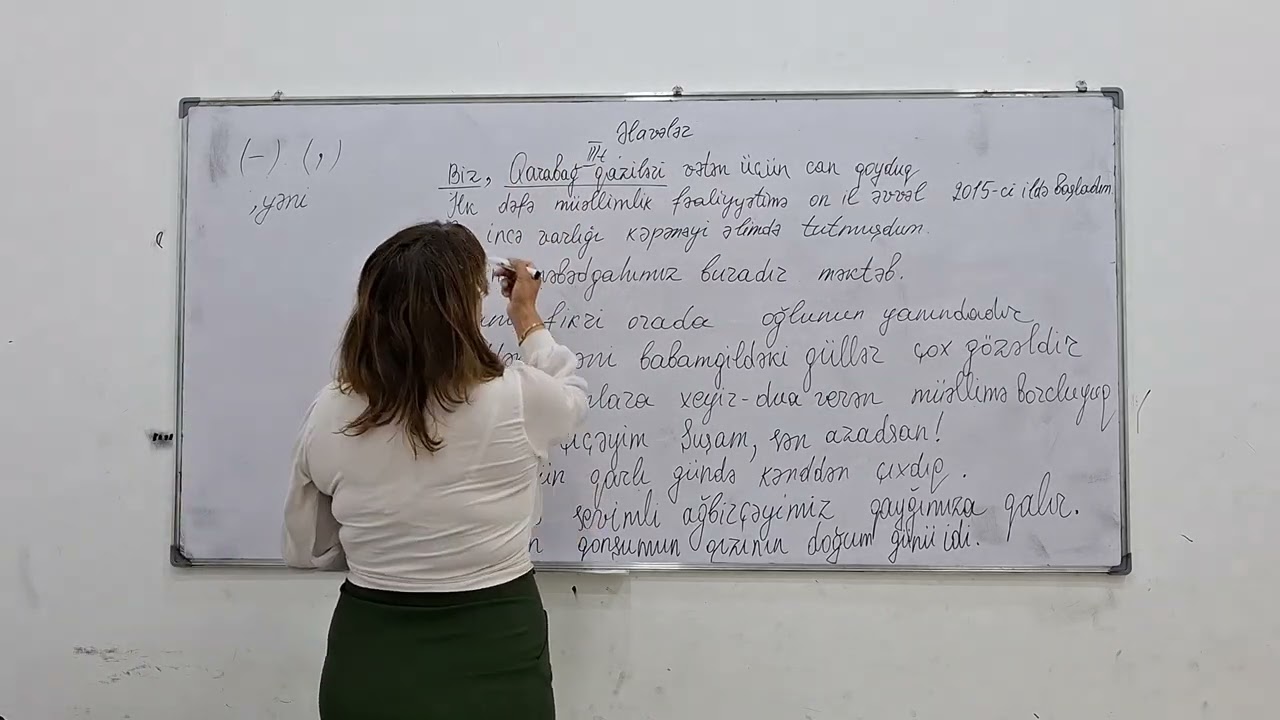 Əlavələr
(–) (,)
III t
Biz, Qarabağ qaziləri vətən üçün can qoyduq
, yəni
İlk dəfə müəllimlik fəaliyyətimə on il əvvəl 2015-ci ildə başladım
incə varlığı kəpənəyi əlimdə tutmuşdum.
buradır məktəb.
fikri orada oğlumun yanındadır
babamgildəki güllər çox gözəldir
xeyir-dua verən müəllimə borcluyuq
Şuşam, sən azadsan!
qarlı gündə kənddən çıxdıq.
sevimli ağbirçəyimiz qayğımıza qalır.
qonşumun qızının doğum günü idi.